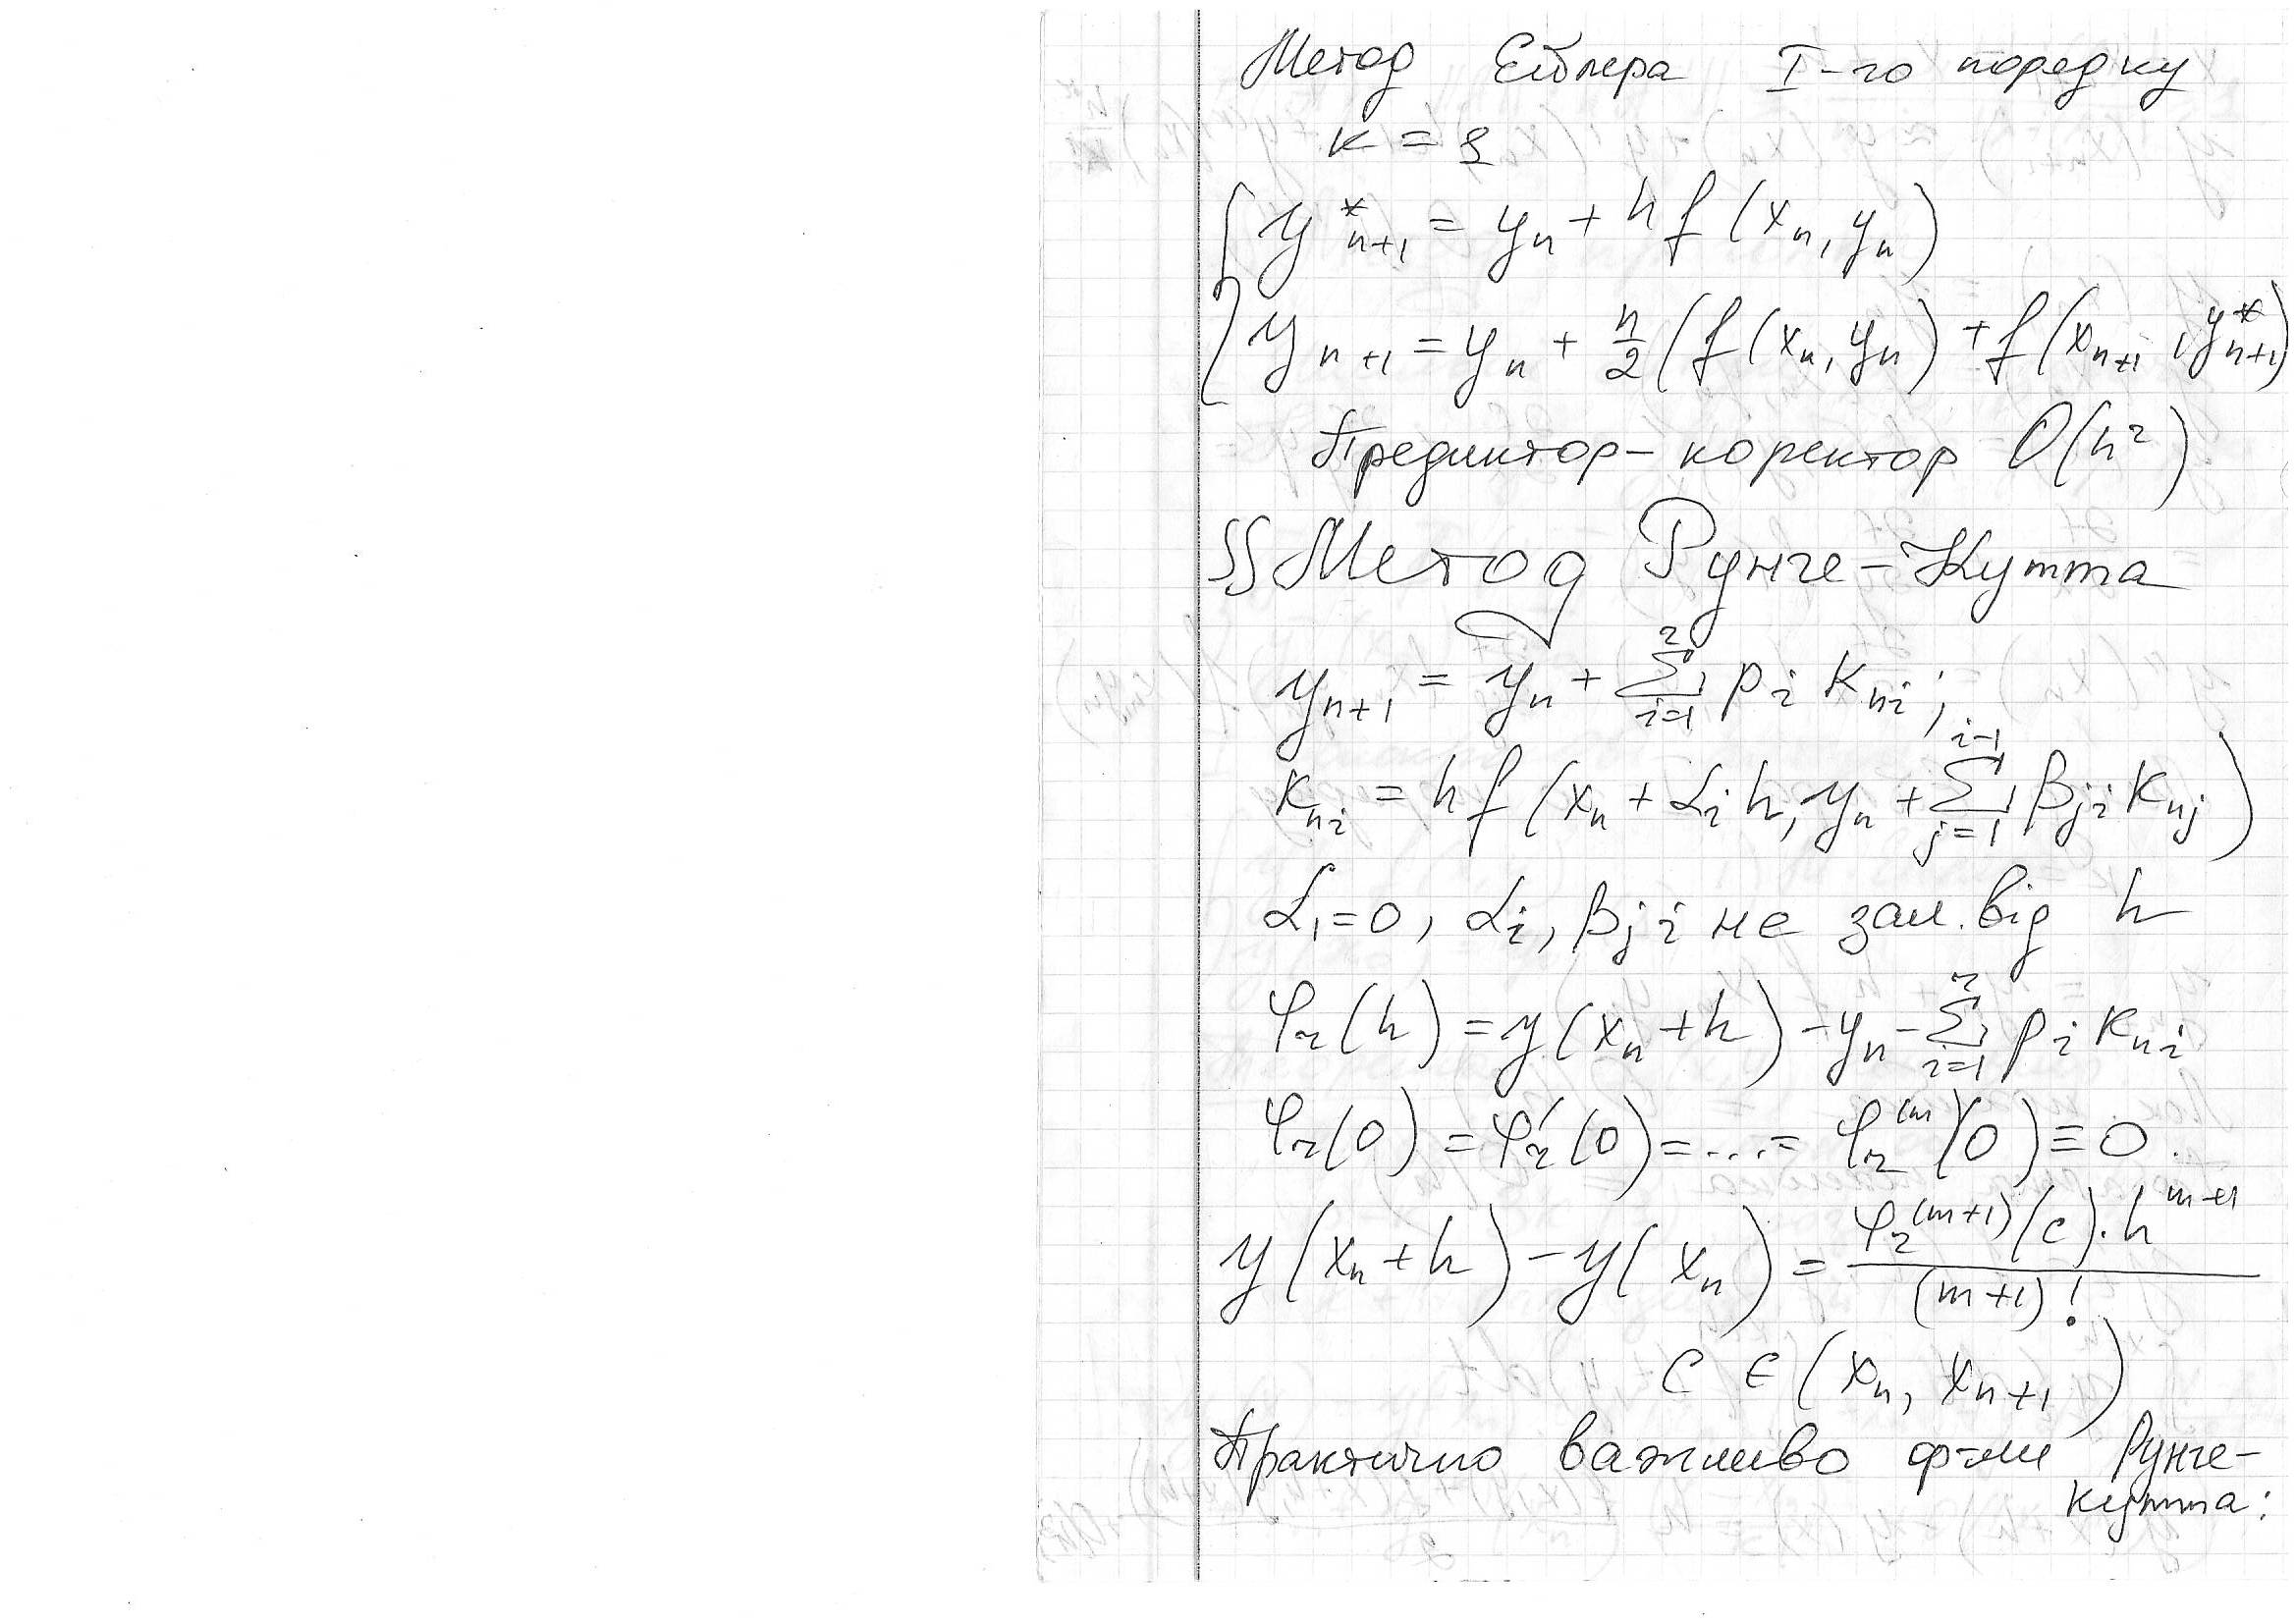 Метод Ейлера I-го порядку
к =
y*ₙ₊₁ = yₙ + h f (xₙ, yₙ)
yₙ₊₁ = yₙ + h/2 (f (xₙ, yₙ) + f (xₙ₊₁, y*ₙ₊₁)
Предиктор-коректор O(h²)
§§ Метод Рунге-Кутта
yₙ₊₁ = yₙ + ∑_{i=1}^{r} p_i k_{ni};
k_{ni} = h f (xₙ + α_i h, yₙ + ∑_{j=1}^{i-1} β_{ji} k_{nj})
α₁=0, α_i, β_{ji} не зал. від h
φ_r(h) = y(xₙ+h) - yₙ - ∑_{i=1}^{r} p_i k_{ni}
φ_r(0) = φ'_r(0) = ... = φ_r^{(m)}(0) ≡ 0.
y(xₙ+h) - y(xₙ) = φ_r^{(m+1)}(c)·h^{m+1} / (m+1)!
c ∈ (xₙ, xₙ₊₁)
Практично важливо ф-ли Рунге-
Кутта: